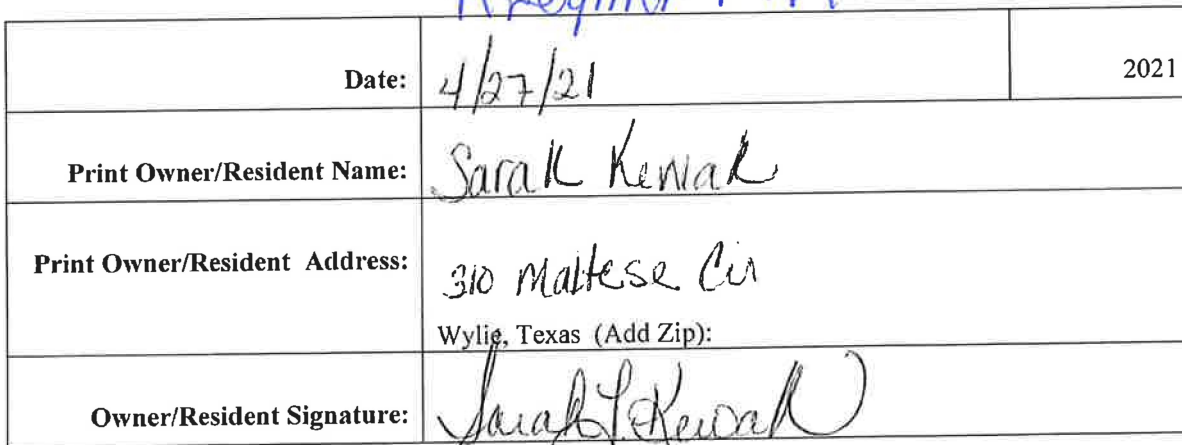 Date: 4/27/21 2021
Print Owner/Resident Name: Sarah
Print Owner/Resident Address: 310 Maltese Cir
Wylie, Texas (Add Zip):
Owner/Resident Signature: Sarah